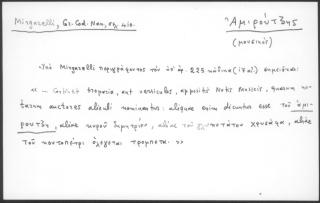 Mingarelli, Gr. Cod. Nan., σελ. 410. Ἀμιρούτζης
(μουσικός)
Ὑπὸ Mingarelli περιγράφοντος τὸν ὑπ' ἀρ. 225 κώδικα (ιζ' αἰ.) σημειοῦται:
« — Continet troparia, aut versiculos, appositis Notis Musicis, quarum no-
tarum auctores alicubi nominantur: aliquae enim dicuntur esse τοῦ ἀμι-
ρούτζη, aliae κυροῦ δημητρίου, aliae τοῦ χρυσάφα, aliae
τοῦ κοντοπέτρι ὀλέγεται τρομπετα. »